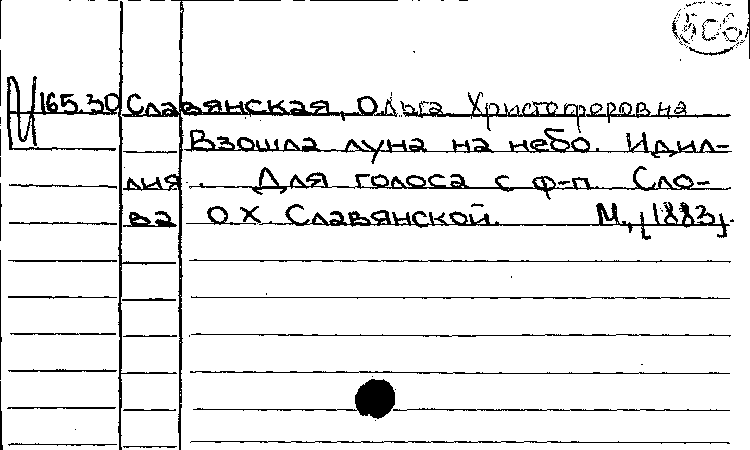 506
165.30 Славянская, Ольга Христофоровна
Взошла луна на небо. Идил-
лия. Для голоса с ф-п. Сло-
ва О.Х. Славянской. М., [1883].